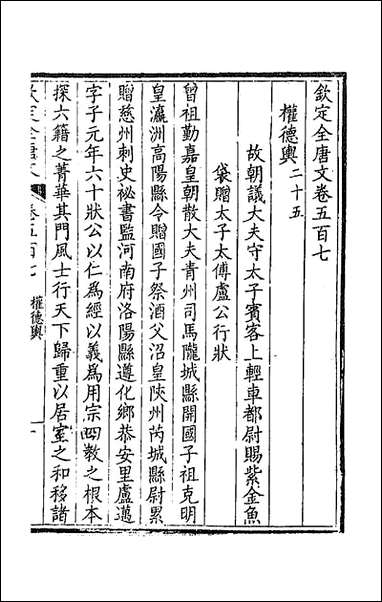 欽定全唐文卷五百七
權德輿二十五
故朝議大夫守太子賓客上輕車都尉賜紫金魚
袋贈太子太傅盧公行狀
曾祖勤嘉皇朝散大夫青州司馬隴城縣開國子祖克明
皇瀛洲高陽縣令贈國子祭酒父沼皇陝州芮城縣尉累
贈慈州刺史祕書監河南府洛陽縣遵化鄉恭安里盧邁
字子元年六十狀公以仁為經以義為用宗四教之根本
探六籍之菁華其門風士行天下歸重以居室之和移諸
欽定全唐文
卷五百七
權德輿
一